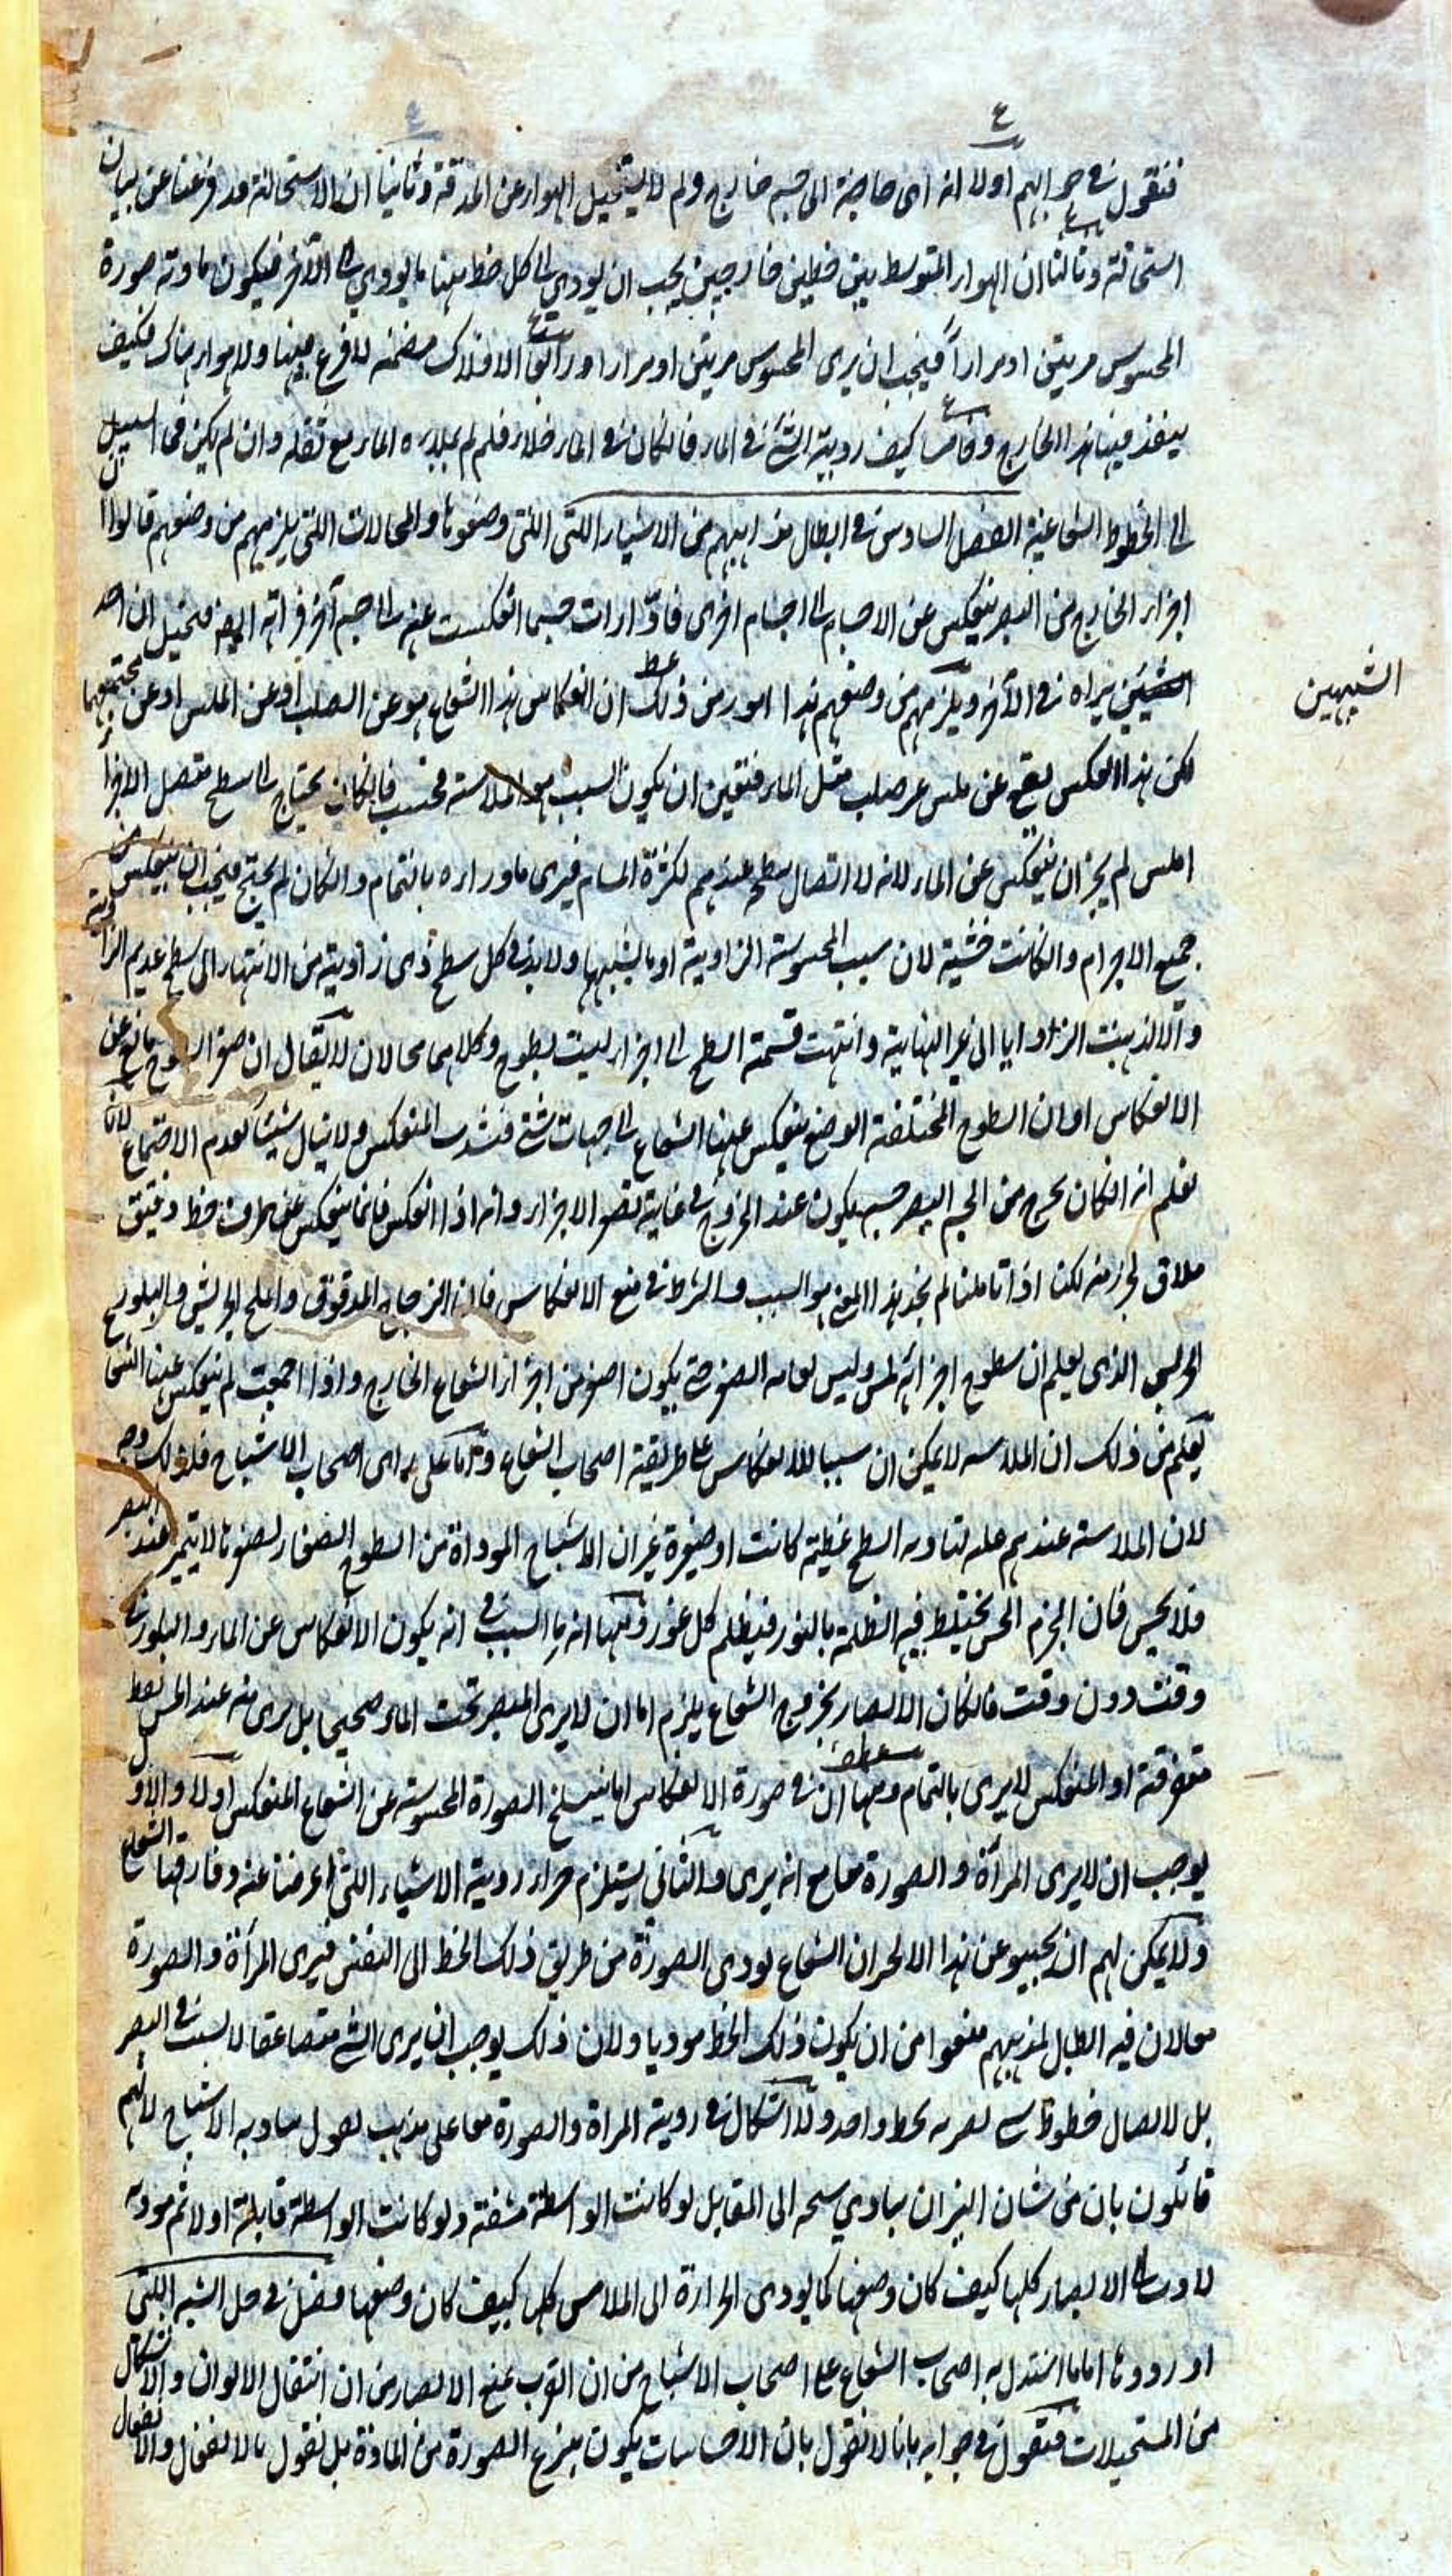 فنقول في جوابهم اولا انه اى حاجة الى جسم خارج ولم لا يستحيل الهواء عن الحدقة وثانيا ان الاستحالة قد فرغنا عن بيان
استحالته وثالثا ان الهواء المتوسط بين خطين خارجين يجب ان يودي الى كل خط منها ما يودي الى الآخر فيكون ما دته صورة
المحسوس مرتين او مرارا فيجب ان يرى المحسوس مرتين او مرارا ورابعا الافلاك مصمتة لا فرج فيها ولا هواء هناك فكيف
ينفذ فيها هذا الخارج وخامسا كيف روية الشئ في الماء فان كان في الماء خلاء فلم لم يملاءه الماء مع ثقله وان لم يكن فما السبيل
الى الخطوط الشعاعية الفصل السادس في ابطال مذاهبهم من الاشياء اللتى وصفوها والمحالات اللتى يلزمهم من وضعهم قالوا ان
اجزاء الخارج من البصر ينعكس عن الاجسام الى اجسام اخرى فاذا رات جسما انعكست عنه الى جسم آخر فراته ايضا فتخيل ان احد
الشيئين يراه في الآخر ويلزمهم من وضعهم هذا امور من ذلك ان انعكاس هذا الشعاع هو عن الصلب او عن الملس او عن مجتمعهما
الشبيهين
لكن هذا العكس يقع عن ملس غير صلب مثل الماء فتعين ان يكون السبب هو الملاسة فحسب فان كان يحتاج الى سطح متصل الاجزاء
املس لم يجز ان ينعكس عن الماء لانه لا اتصال سطح عندهم لكثرة المسام فيرى ما وراءه بالتمام وان كان لم يحتج فيجب ان ينعكس من
جميع الاجرام وان كانت خشنة لان سبب الخشونة الزاوية او ما يشبهها ولا بد في كل سطح ذى زاوية من الانتهاء الى سطح عديم الزاوية
والا لذهبت الزوايا الى غير النهاية وانتهت قسمة السطح الى اجزاء ليست بسطوح وكلاهما محالان لا يقال ان صغر السطوح مانع عن
الانعكاس او ان السطوح المختلفة الوضع ينعكس عنها الشعاع الى جهات شتى فتشذب المنعكس ولا ينال شيئا لعدم الاجتماع لانا
نعلم انه ان كان يخرج من البصر جسم يكون عند الخروج في غاية تصغر الاجزاء وانه اذا انعكس فانما ينعكس عنه طرف خط دقيق
ملاق لجزء منه لكنا اذا تاملنا لم نجد هذا المعنى هو السبب والشرط في منع الانعكاس فان الزجاج المدقوق والملح الجريش والبلور
الجريش الذى يعلم ان سطوح اجزائه ملس وليس بغاية الصغر حتى يكون اصغر من اجزاء الشعاع الخارج واذا اجتمعت لم ينعكس عنها الشعاع
يعلم من ذلك ان الملاسه لا يمكن ان سببا للانعكاس على طريقة اصحاب الشعاع واما على راى اصحاب الاشباح فلذلك وجه
لان الملاسة عندهم عله لتاديه السطح عظيمة كانت او صغيرة غير ان الاشباح الموداة من السطوح الصغار لصغرها لا يتميز عند البصر
فلا يحس فان الجرم الخشن يختلط فيه الظلمة بالنور فيظلم كل غور ومنها انه ما السبب في انه يكون الانعكاس عن الماء والبلور في
وقت دون وقت فان كان الابصار بخروج الشعاع يلزم اما ان لا يرى المبصر تحت الماء صحيحا بل يرى منه عند الحس نقط
متفرقة او المنعكس لا يرى بالتمام ومنها ان في صورة الانعكاس اما ينسلخ الصورة المحسوسة عن الشعاع المنعكس او لا والاول
يوجب ان لا يرى المرآة والصورة معا مع انه يرى والثانى يستلزم جواز روية الاشياء اللتى اعرضنا عنه وفارقها الشعاع
ولا يمكن لهم ان يجيبو عن هذا الا لحران الشعاع يودى الصورة من طريق ذلك الخط الى النفس فيرى المرآة والصورة
معا لان فيه ابطال لمذهبهم منعوا من ان يكون ذلك الخط موديا ولان ذلك يوجب ان يرى الشئ متضاعفا لا بسبب في البصر
بل لاتصال خطوط بخط واحد ولا اشكال في روية المراة والصورة معا على مذهب الاشباح لانهم
قائلون بان من شان النيران الى المقابل لو كانت الواسطة مشفة ولو كانت الواسطة قابلة اولا ثم موديه
الابصار كلها كيف كان وضعها كما يودى الحرارة الى الملامس كلها كيف كان وضعها فصل في حل الشبه اللتى
اوردوها اما ما استدل به اصحاب الشعاع على اصحاب الاشباح من ان القرب يمنع الابصار من ان انتقال الالوان والاشكال
من المستحيلات فنقول في جوابه بانا لا نقول بان الاحساسات يكون بنزع الصورة من المادة بل نقول بالانفعال والانفعال